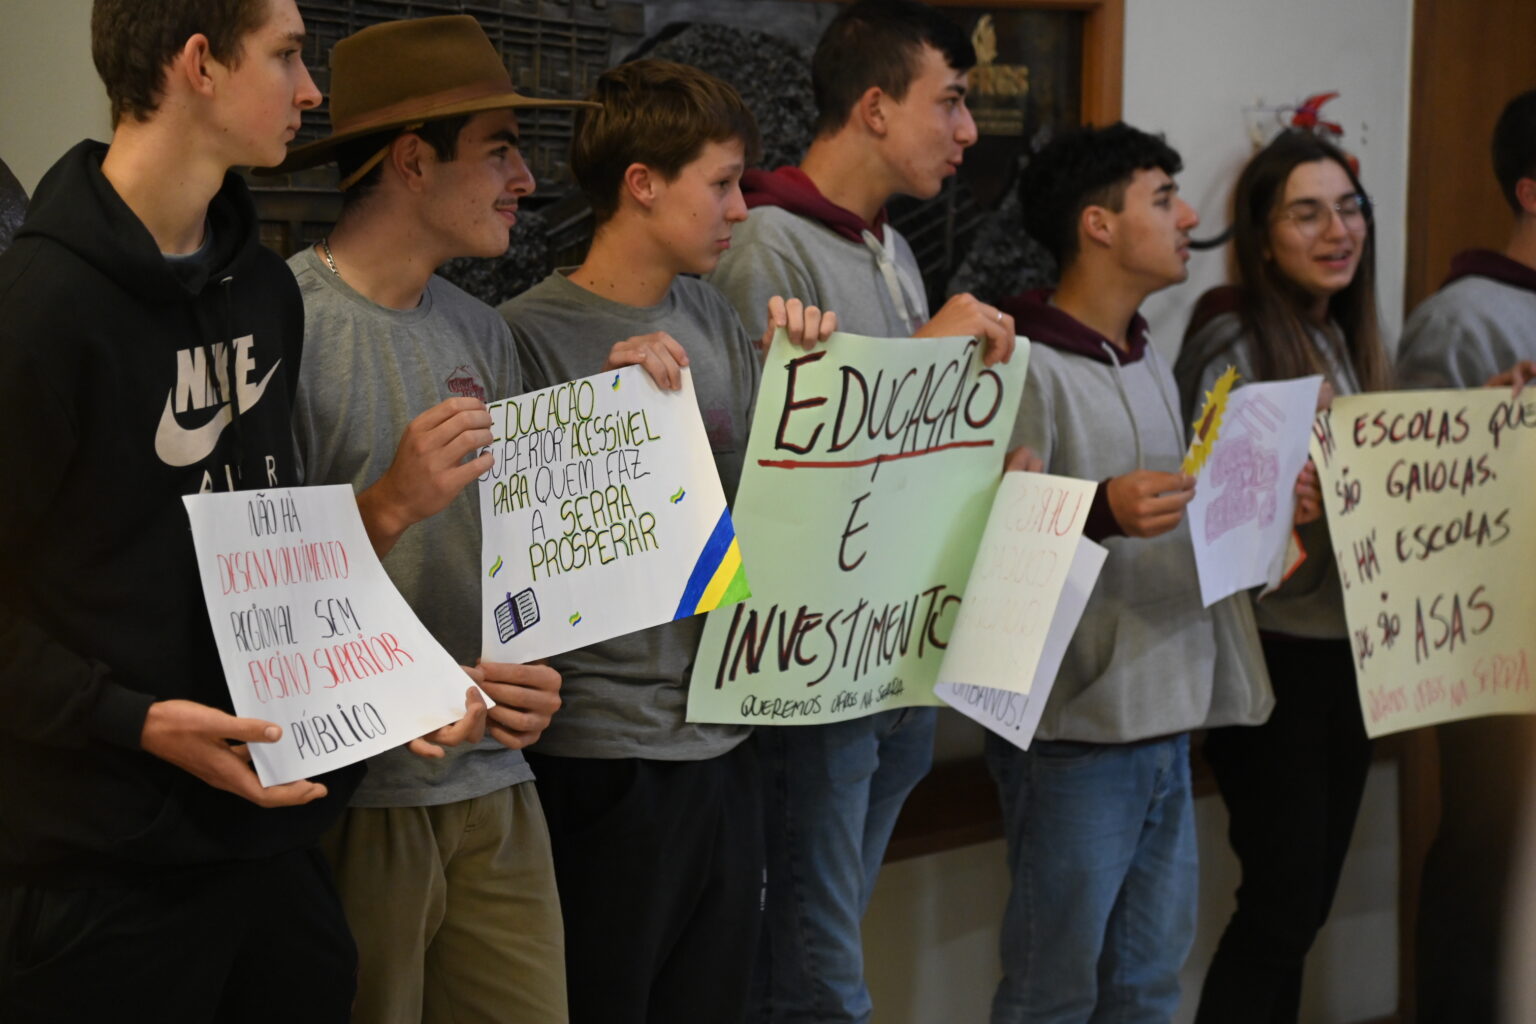 NIKE
AIR
NÃO HÁ
DESENVOLVIMENTO
REGIONAL SEM
ENSINO SUPERIOR
PÚBLICO
EDUCAÇÃO
SUPERIOR ACESSÍVEL
PARA QUEM FAZ
A SERRA
PROSPERAR
EDUCAÇÃO
É
INVESTIMENTO
QUEREMOS UFRGS NA SERRA
UFRGS
URBANOS!
HÁ ESCOLAS QUE
SÃO GAIOLAS.
E HÁ ESCOLAS
QUE SÃO ASAS
QUEREMOS UFRGS NA SERRA